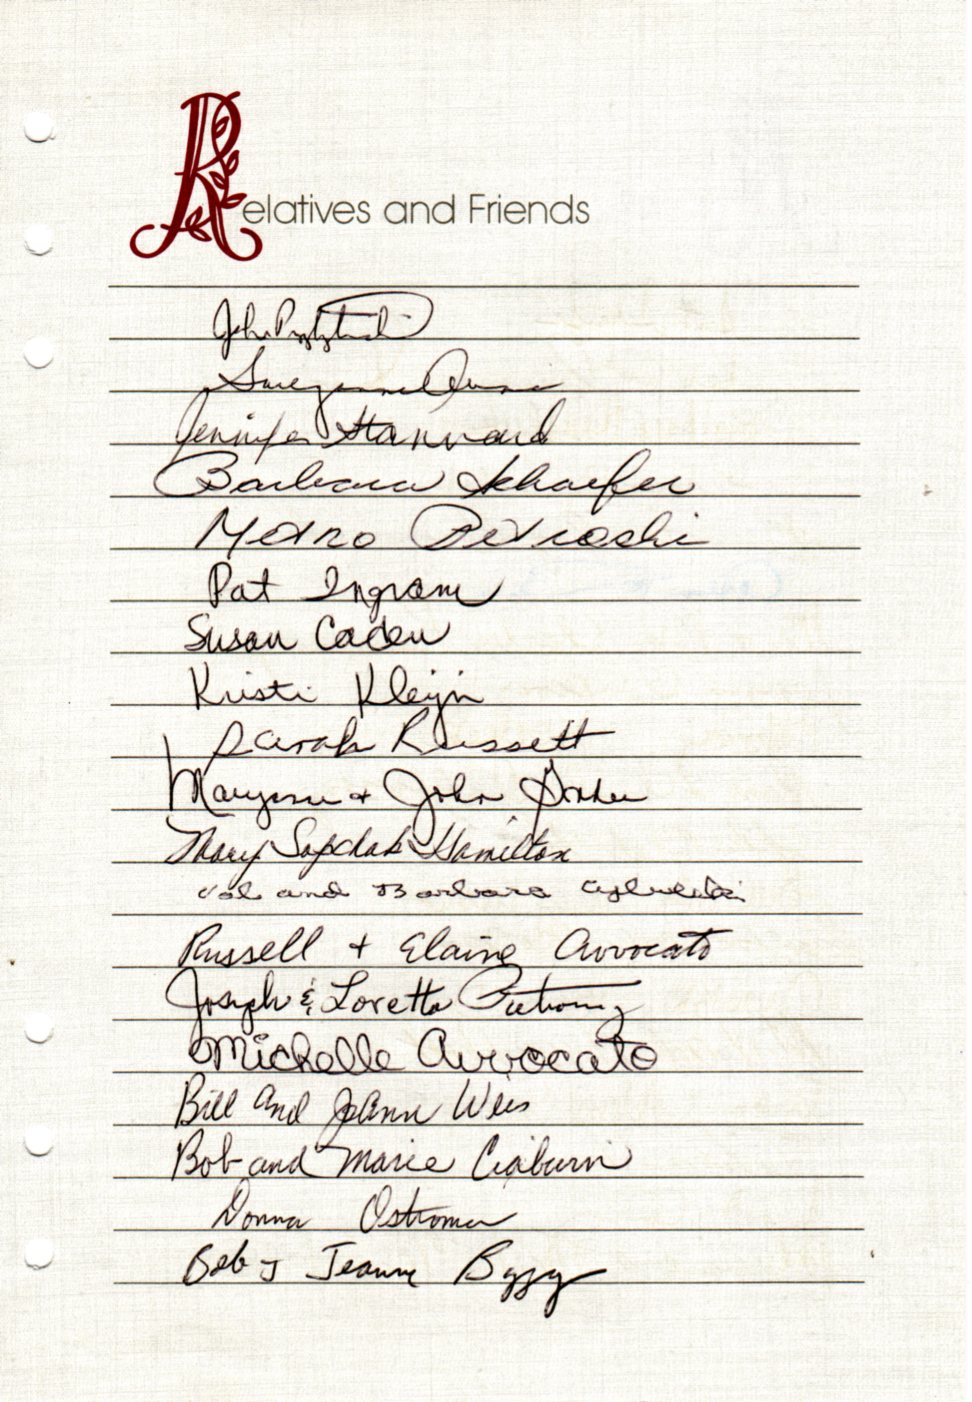 Relatives and Friends
John
Suezanne
Jennifer Stannard
Barbara Schaefer
Metro Petroski
Pat Ingram
Susan Caden
Kristi Kleijn
Sarah Russett
Maryann + John
Mary Sopchak Hamilton
Val and Barbara
Russell + Elaine Avvocato
Joseph & Loretta
Michelle Avvocato
Bill and JoAnn Weis
Bob and Marie Ciaburri
Donna
Bob & Jeanne